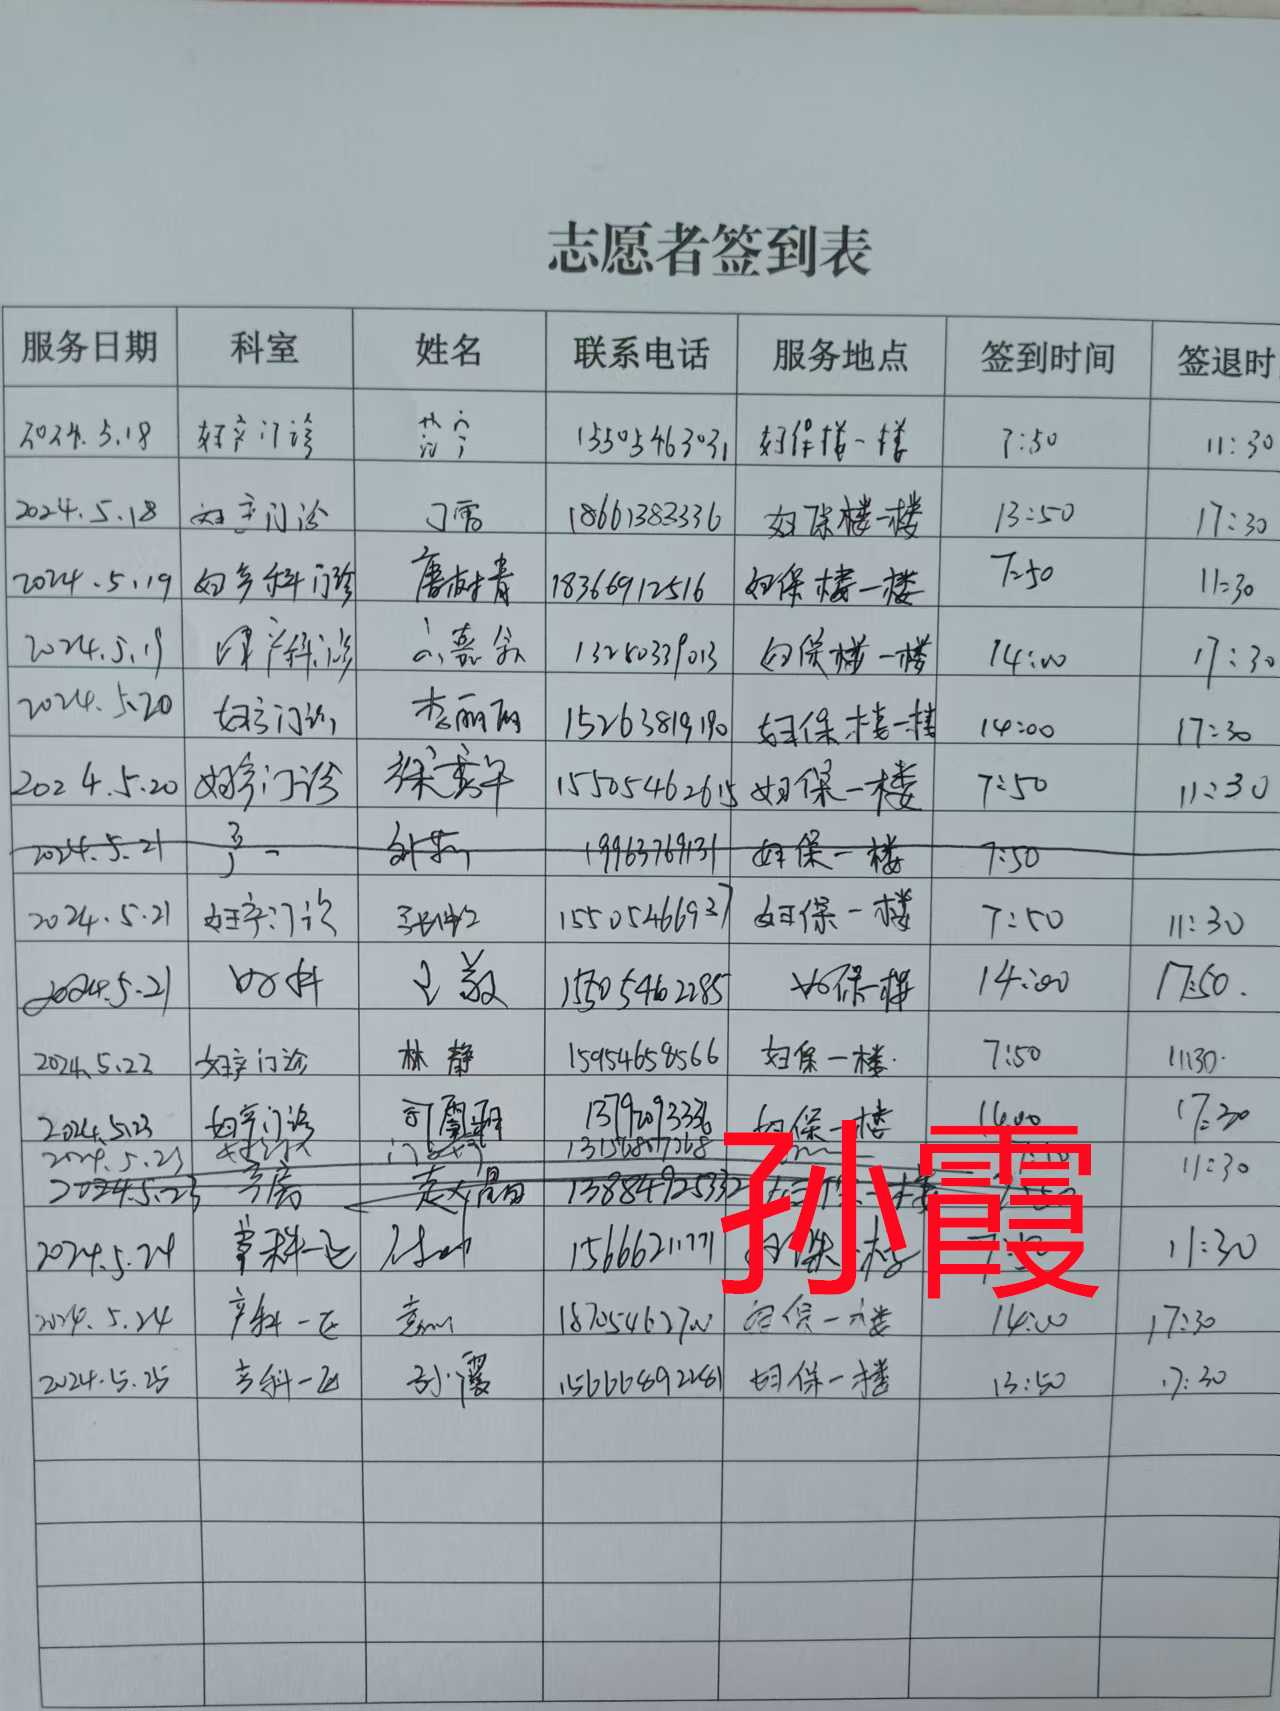 志愿者签到表
服务日期 科室 姓名 联系电话 服务地点 签到时间 签退时
2024.5.18 妇产门诊 15505463031 妇保楼一楼 7:50 11:30
2024.5.18 妇产门诊 18661383336 妇保楼一楼 13:50 17:30
2024.5.19 妇产科门诊 唐树青 18366912516 妇保楼一楼 7:50 11:30
2024.5.19 产科门诊 13280339013 妇保楼一楼 14:00 17:30
2024.5.20 妇产门诊 李丽丽 15263819190 妇保楼一楼 14:00 17:30
2024.5.20 妇产门诊 15505462615 妇保一楼 7:50 11:30
2024.5.21 19963769131 妇保一楼 7:50
2024.5.21 妇产门诊 15505466937 妇保一楼 7:50 11:30
2024.5.21 妇科 15505462285 妇保一楼 14:00 17:50.
2024.5.23 妇产门诊 林静 15954658566 妇保一楼. 7:50 11:30.
2024.5.23 妇产门诊 妇保一楼 14:00 17:30
2024.5.23 11:30
2024.5.23 产房 13884925332
2024.5.24 产科一区 15666211771 11:30
2024.5.24 产科一区 妇保一楼 14:00 17:30
2024.5.25 产科一区 孙霞 妇保一楼 13:50 17:30
孙霞